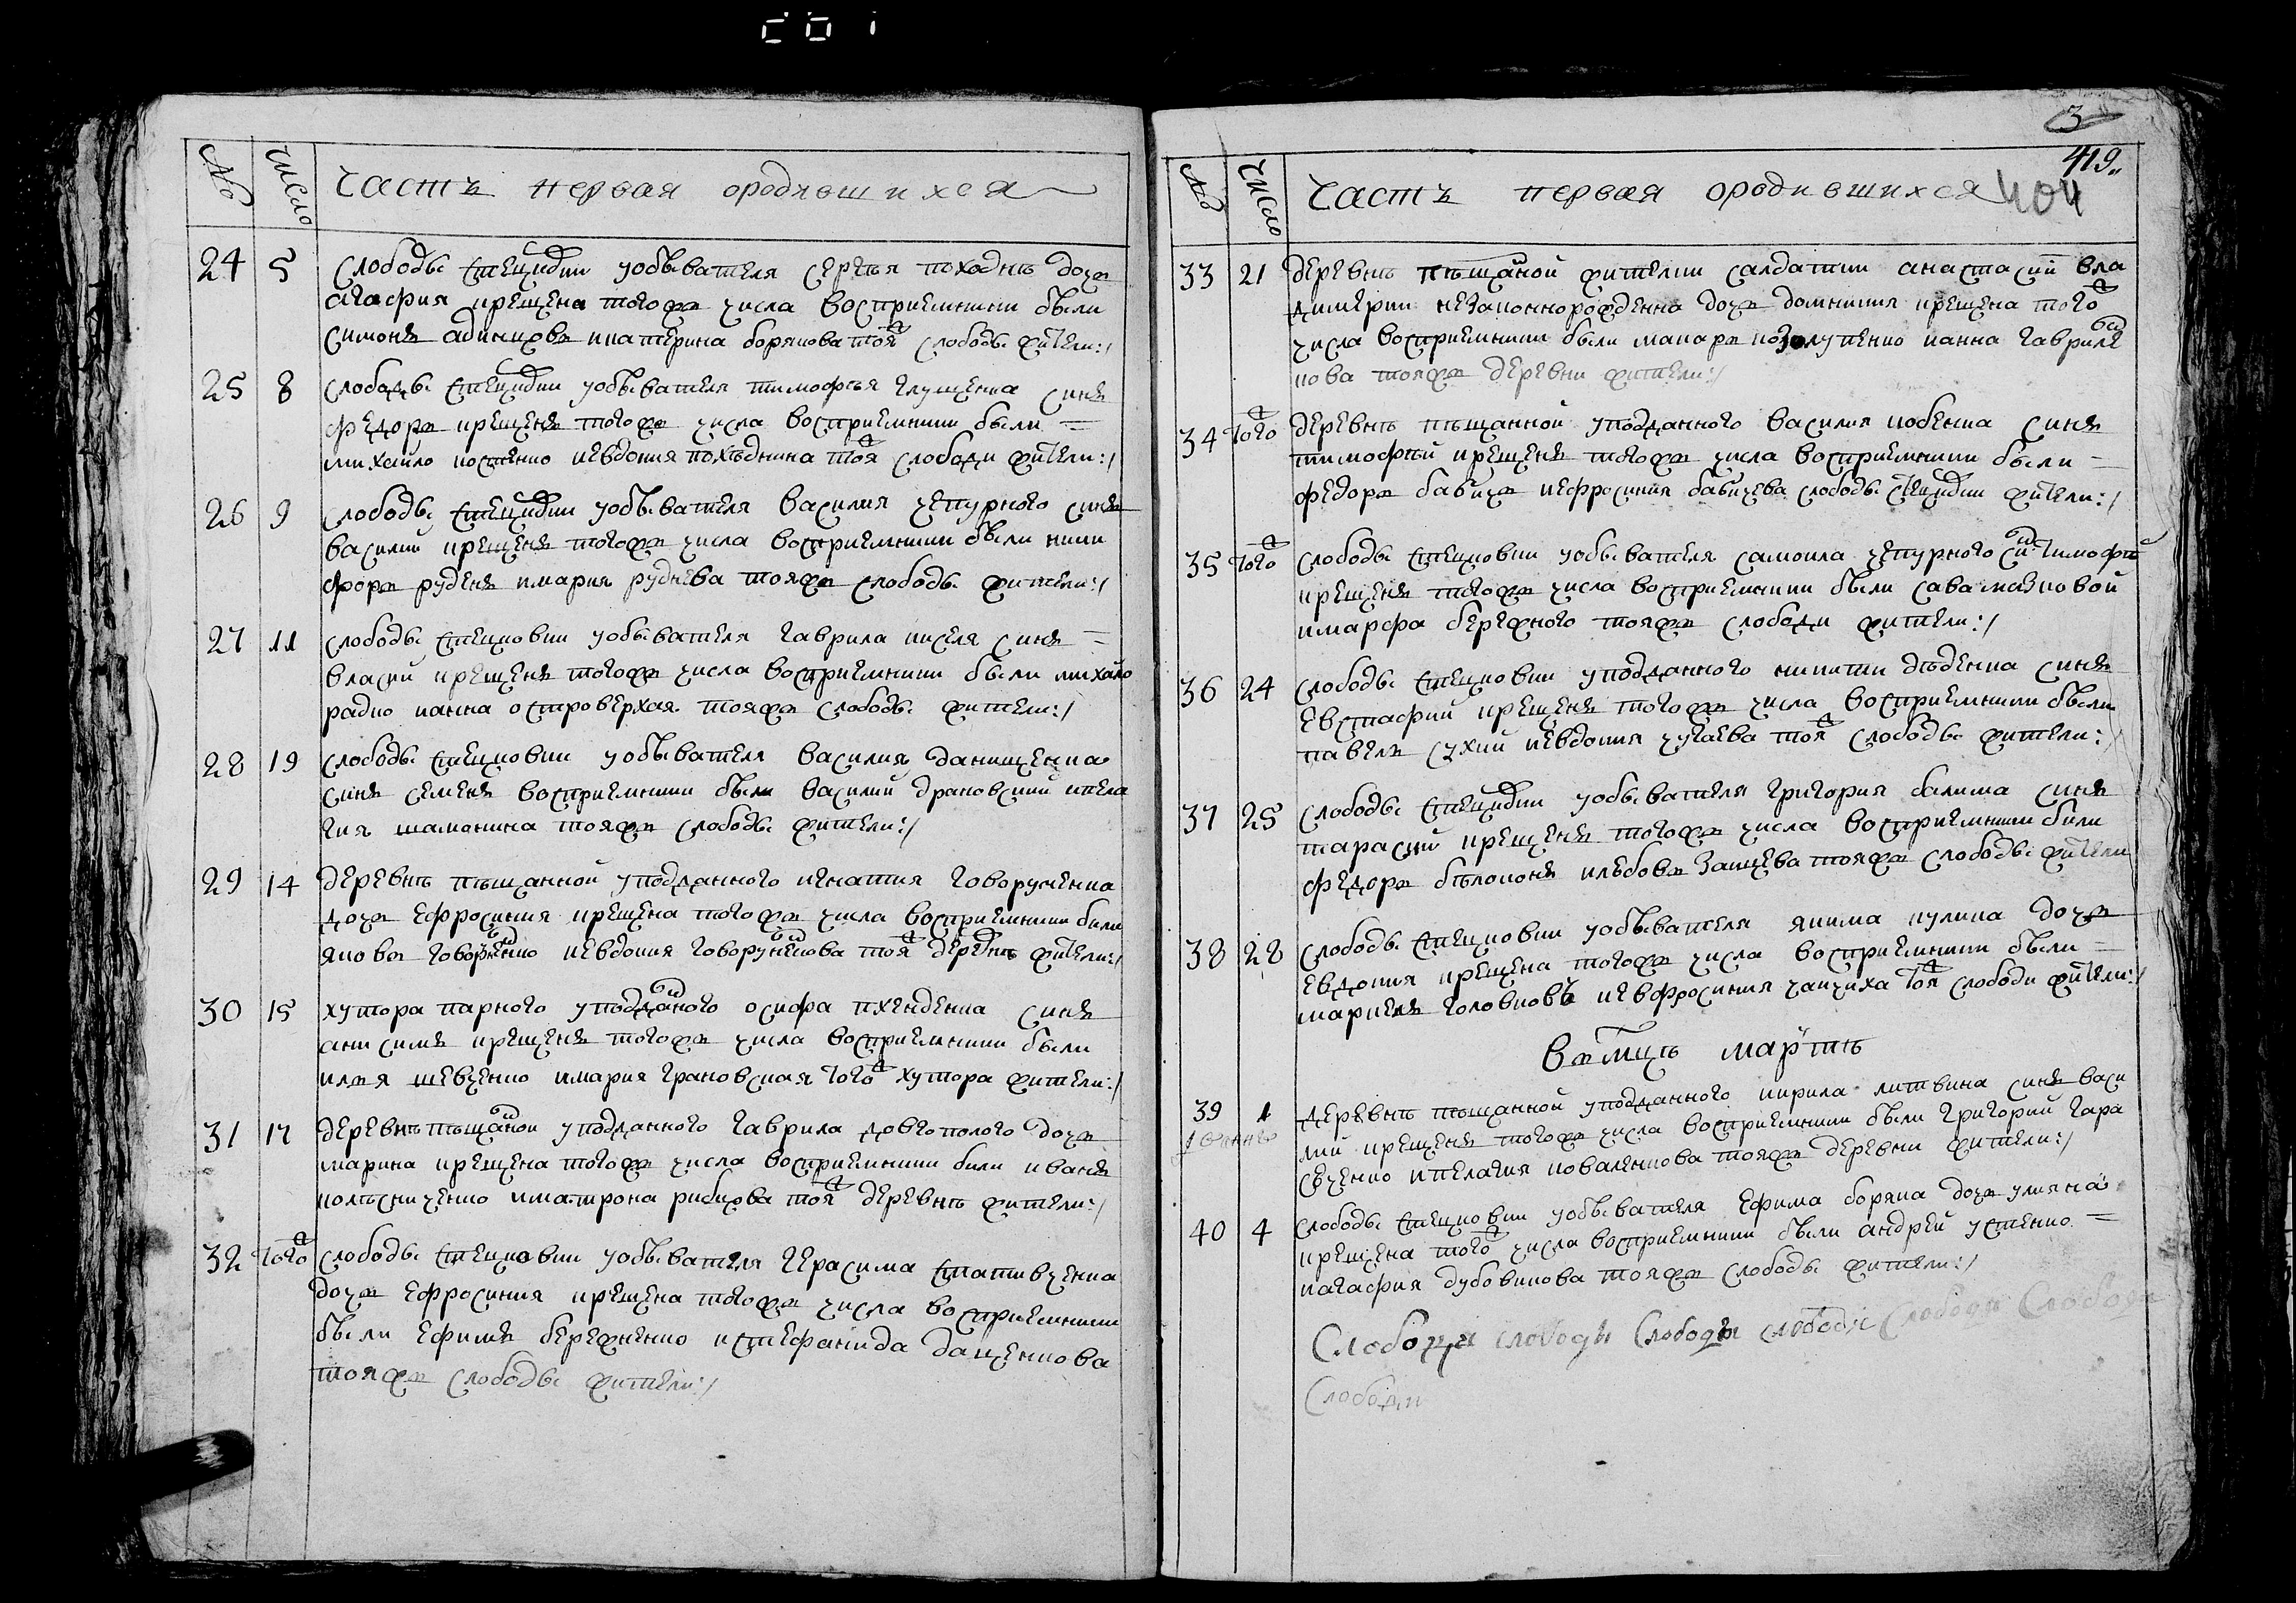 № число Часть первая ородившихся
24 5 Слободы стецковки уобывателя сергѣя походнѣ дочь
агафия крещена тогожъ числа восприемники были
симонъ катерина борякова тояж слободы жители:/
25 8 слободы стецковки уобывателя тимофѣя глущенка синъ
федоръ крещенъ тогожъ числа восприемники были =
михайло костенко иевдокия тояж слободи жители:/
26 9 слободы стецковки уобывателя василия чепурного синъ
василий крещенъ тогожъ числа восприемники были ники
форъ руденъ имария руднева тояжъ слободы жители:/
27 11 слободы стецковки уобывателя гаврила киселя синъ =
власий крещенъ тогожъ числа восприемники были михайло
радко ианна островерхая тояжъ слободы жители:/
28 19 слободы стецковки уобывателя василия данищенка
синъ семенъ восприемники были василий драновский ипела
гия шамонина тояжъ слободы жители:/
29 14 деревнѣ пѣщанной уподданного игнатия говоруненка
дочь ефросиния крещена тогожъ числа восприемники были
яковъ говорунѣнко иевдокия говорунѣнкова тояж деревнѣ жители:/
30 15 хутора парного уподданого осифа синъ
анисимъ крещенъ тогожъ числа восприемники были
илья шевченко имария грановская тогож хутора жители:/
31 17 деревнѣ пѣщаной уподданного гаврила довгополого дочь
марина крещена тогожъ числа восприемники били иванъ
колѣсниченко иматрона рибцова тояж деревнѣ жители:/
32 тогож слободы стецковки уобывателя герасима стативченка
дочь ефросиния крещена тогожъ числа восприемники
были ефимъ бережненко истефанида даценкова
тояжъ слободы жители:/
3
419.
404
№ число Часть первая ородившихся
33 21 деревнѣ пѣщаной жителки салдатки анастасий вла
димерки незаконнорожденна дочь домникия крещена тогож
числа восприемники были макаръ позолутенко ианна гавриле
нкова тояжъ деревни жители:/
34 тогож деревнѣ пѣщанной уподданного василия кобенка синъ
тимофѣй крещенъ тогожъ числа восприемники были =
федоръ бабичъ иефросиния бабичева слободы стецковки жители:/
35 тогож слободы стецковки уобывателя самоила чепурного синъ тимофѣй
крещенъ тогожъ числа восприемники были сава
имарфа бережного тояжъ слободи жители:/
36 24 слободы стецковки уподданного никити дѣденка синъ
евстафий крещенъ тогожъ числа восприемники были
павелъ сухий иевдокия чугаева тояж слободы жители:
37 25 слободы стецковки уобывателя григория балима синъ
тарасий крещенъ тогожъ числа восприемники били
федоръ бѣлоконъ илюбовъ заицева тояжъ слободы жители
38 28 слободы стецковки уобывателя якима кулика дочъ
евдокия крещена тогожъ числа восприемники были =
мариянъ головковъ иевфросиния тояж слободи жители:/
въ мцѣ мартѣ
39 1 деревнѣ пѣщанной уподданного кирила литвина синъ васи
лий крещенъ тогожъ числа восприемники были григорий гара
сченко ипелагия коваленкова тояжъ деревни жители:/
40 4 слободы стецковки уобывателя ефима боряка дочь улияна
крещена тогож числа восприемники были андрей устенко =
иагафия дубовикова тояжъ слободы жители:/
Слободи слободы Слободы слободы Слободы Слободы
Слободи